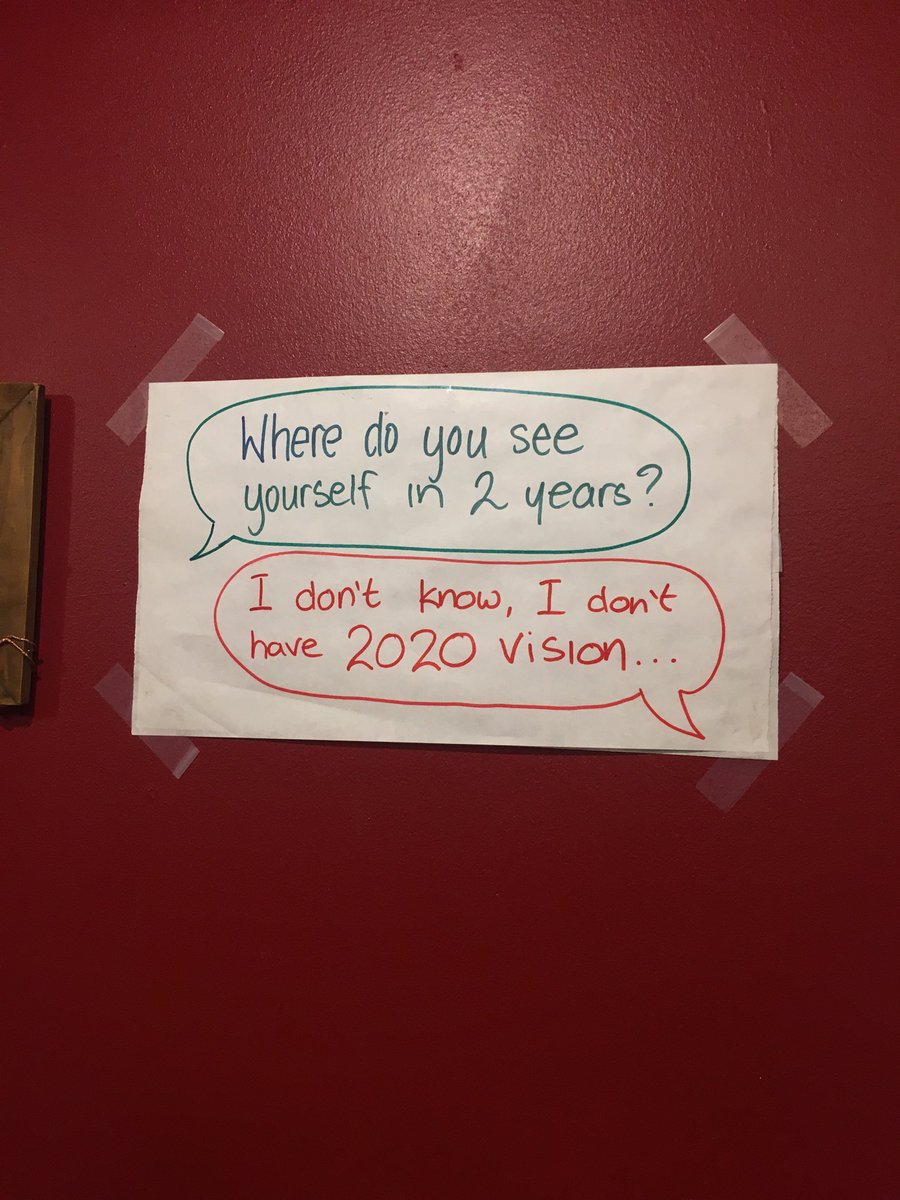 Where do you see
yourself in 2 years?
I don't know, I don't
have 2020 vision...